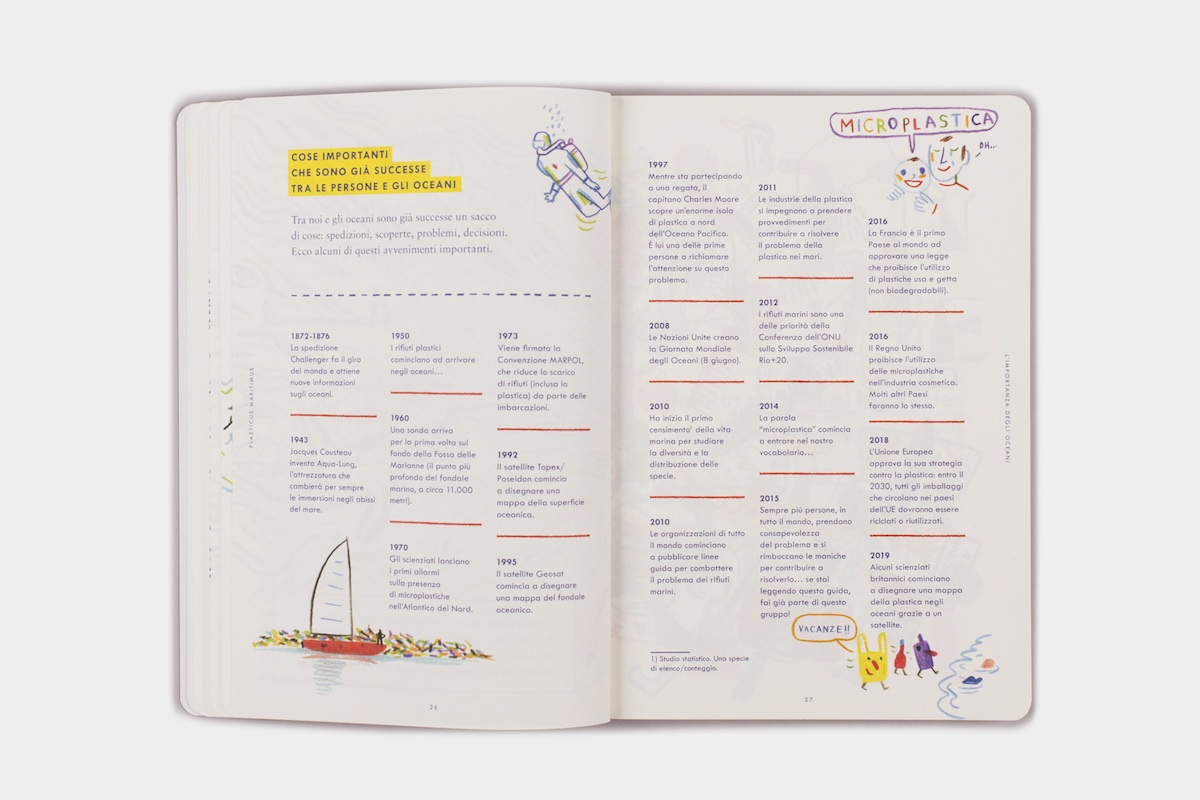 COSE IMPORTANTI
CHE SONO GIÀ SUCCESSE
TRA LE PERSONE E GLI OCEANI
Tra noi e gli oceani sono già successe un sacco
di cose: spedizioni, scoperte, problemi, decisioni.
Ecco alcuni di questi avvenimenti importanti.
PLASTICUS MARITIMUS
1872-1876
La spedizione
Challenger fa il giro
del mondo e ottiene
nuove informazioni
sugli oceani.
1943
Jacques Cousteau
inventa Aqua-Lung,
l'attrezzatura che
cambierà per sempre
le immersioni negli abissi
del mare.
1950
I rifiuti plastici
cominciano ad arrivare
negli oceani...
1960
Una sonda arriva
per la prima volta sul
fondo della Fossa delle
Marianne (il punto più
profondo del fondale
marino, a circa 11.000
metri).
1970
Gli scienziati lanciano
i primi allarmi
sulla presenza
di microplastiche
nell'Atlantico del Nord.
1973
Viene firmata la
Convenzione MARPOL,
che riduce lo scarico
di rifiuti (inclusa la
plastica) da parte delle
imbarcazioni.
1992
Il satellite Topex/
Poseidon comincia
a disegnare una
mappa della superficie
oceanica.
1995
Il satellite Geosat
comincia a disegnare
una mappa del fondale
oceanica.
26
1997
Mentre sta partecipando
a una regata, il
capitano Charles Moore
scopre un'enorme isola
di plastica a nord
dell'Oceano Pacifico.
È lui una delle prime
persone a richiamare
l'attenzione su questo
problema.
2008
Le Nazioni Unite creano
la Giornata Mondiale
degli Oceani (8 giugno).
2010
Ha inizio il primo
censimento¹ della vita
marina per studiare
la diversità e la
distribuzione delle
specie.
2010
Le organizzazioni di tutto
il mondo cominciano
a pubblicare linee
guida per combattere
il problema dei rifiuti
marini.
1) Studio statistico. Una specie
di elenco/conteggio.
2011
Le industrie della plastica
si impegnano a prendere
provvedimenti per
contribuire a risolvere
il problema della
plastica nei mari.
2012
I rifiuti marini sono una
delle priorità della
Conferenza dell'ONU
sullo Sviluppo Sostenibile
Rio+20.
2014
La parola
"microplastica" comincia
a entrare nel nostro
vocabolario...
2015
Sempre più persone, in
tutto il mondo, prendono
consapevolezza
del problema e si
rimboccano le maniche
per contribuire a
risolverlo... se stai
leggendo questa guida,
fai già parte di questo
gruppo!
MICROPLASTICA
OH...
2016
La Francia è il primo
Paese al mondo ad
approvare una legge
che proibisce l'utilizzo
di plastiche usa e getta
(non biodegradabili).
2016
Il Regno Unito
proibisce l'utilizzo
delle microplastiche
nell'industria cosmetica.
Molti altri Paesi
faranno lo stesso.
2018
L'Unione Europea
approva la sua strategia
contro la plastica: entro il
2030, tutti gli imballaggi
che circolano nei paesi
dell'UE dovranno essere
riciclati o riutilizzati.
2019
Alcuni scienziati
britannici cominciano
a disegnare una mappa
della plastica negli
oceani grazie a un
satellite.
VACANZE!!
L'IMPORTANZA DEGLI OCEANI
27